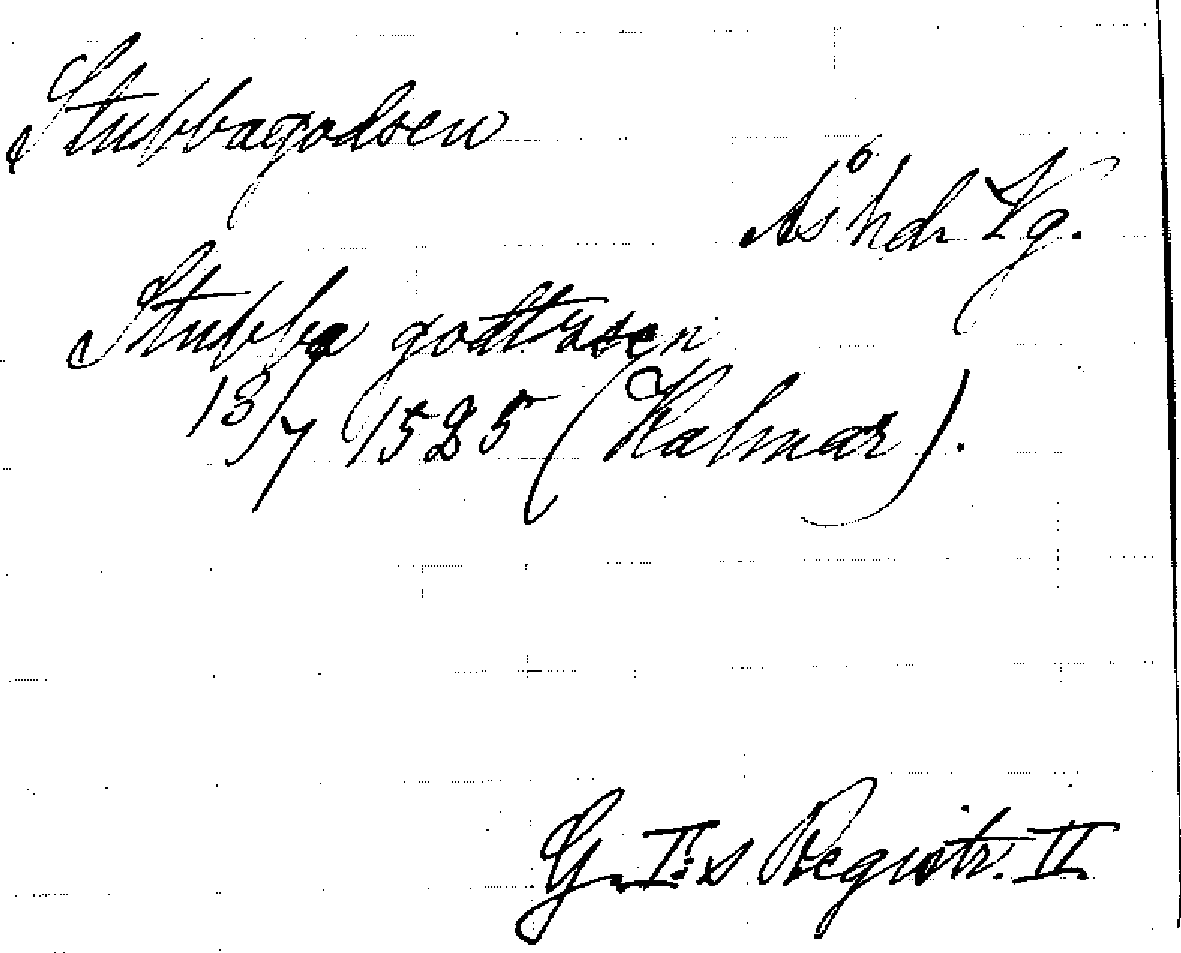 Stubbagodsen
Ås hd Vg.
Stubba godttzsen
13/7 1525 (Kalmar).
G. I:s Registr. II